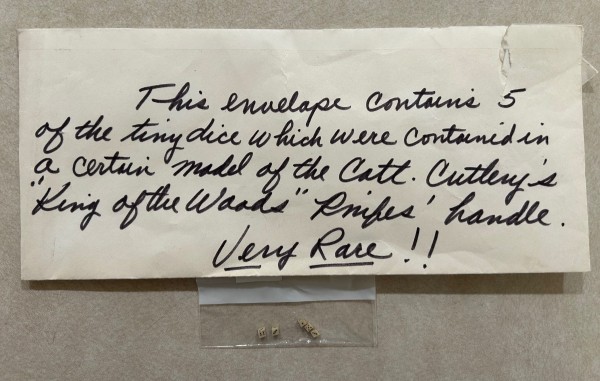 This envelope contains 5
of the tiny dice which were contained in
a certain model of the Catt. Cutlery's
"King of the Woods" Knifes' handle.
Very Rare!!